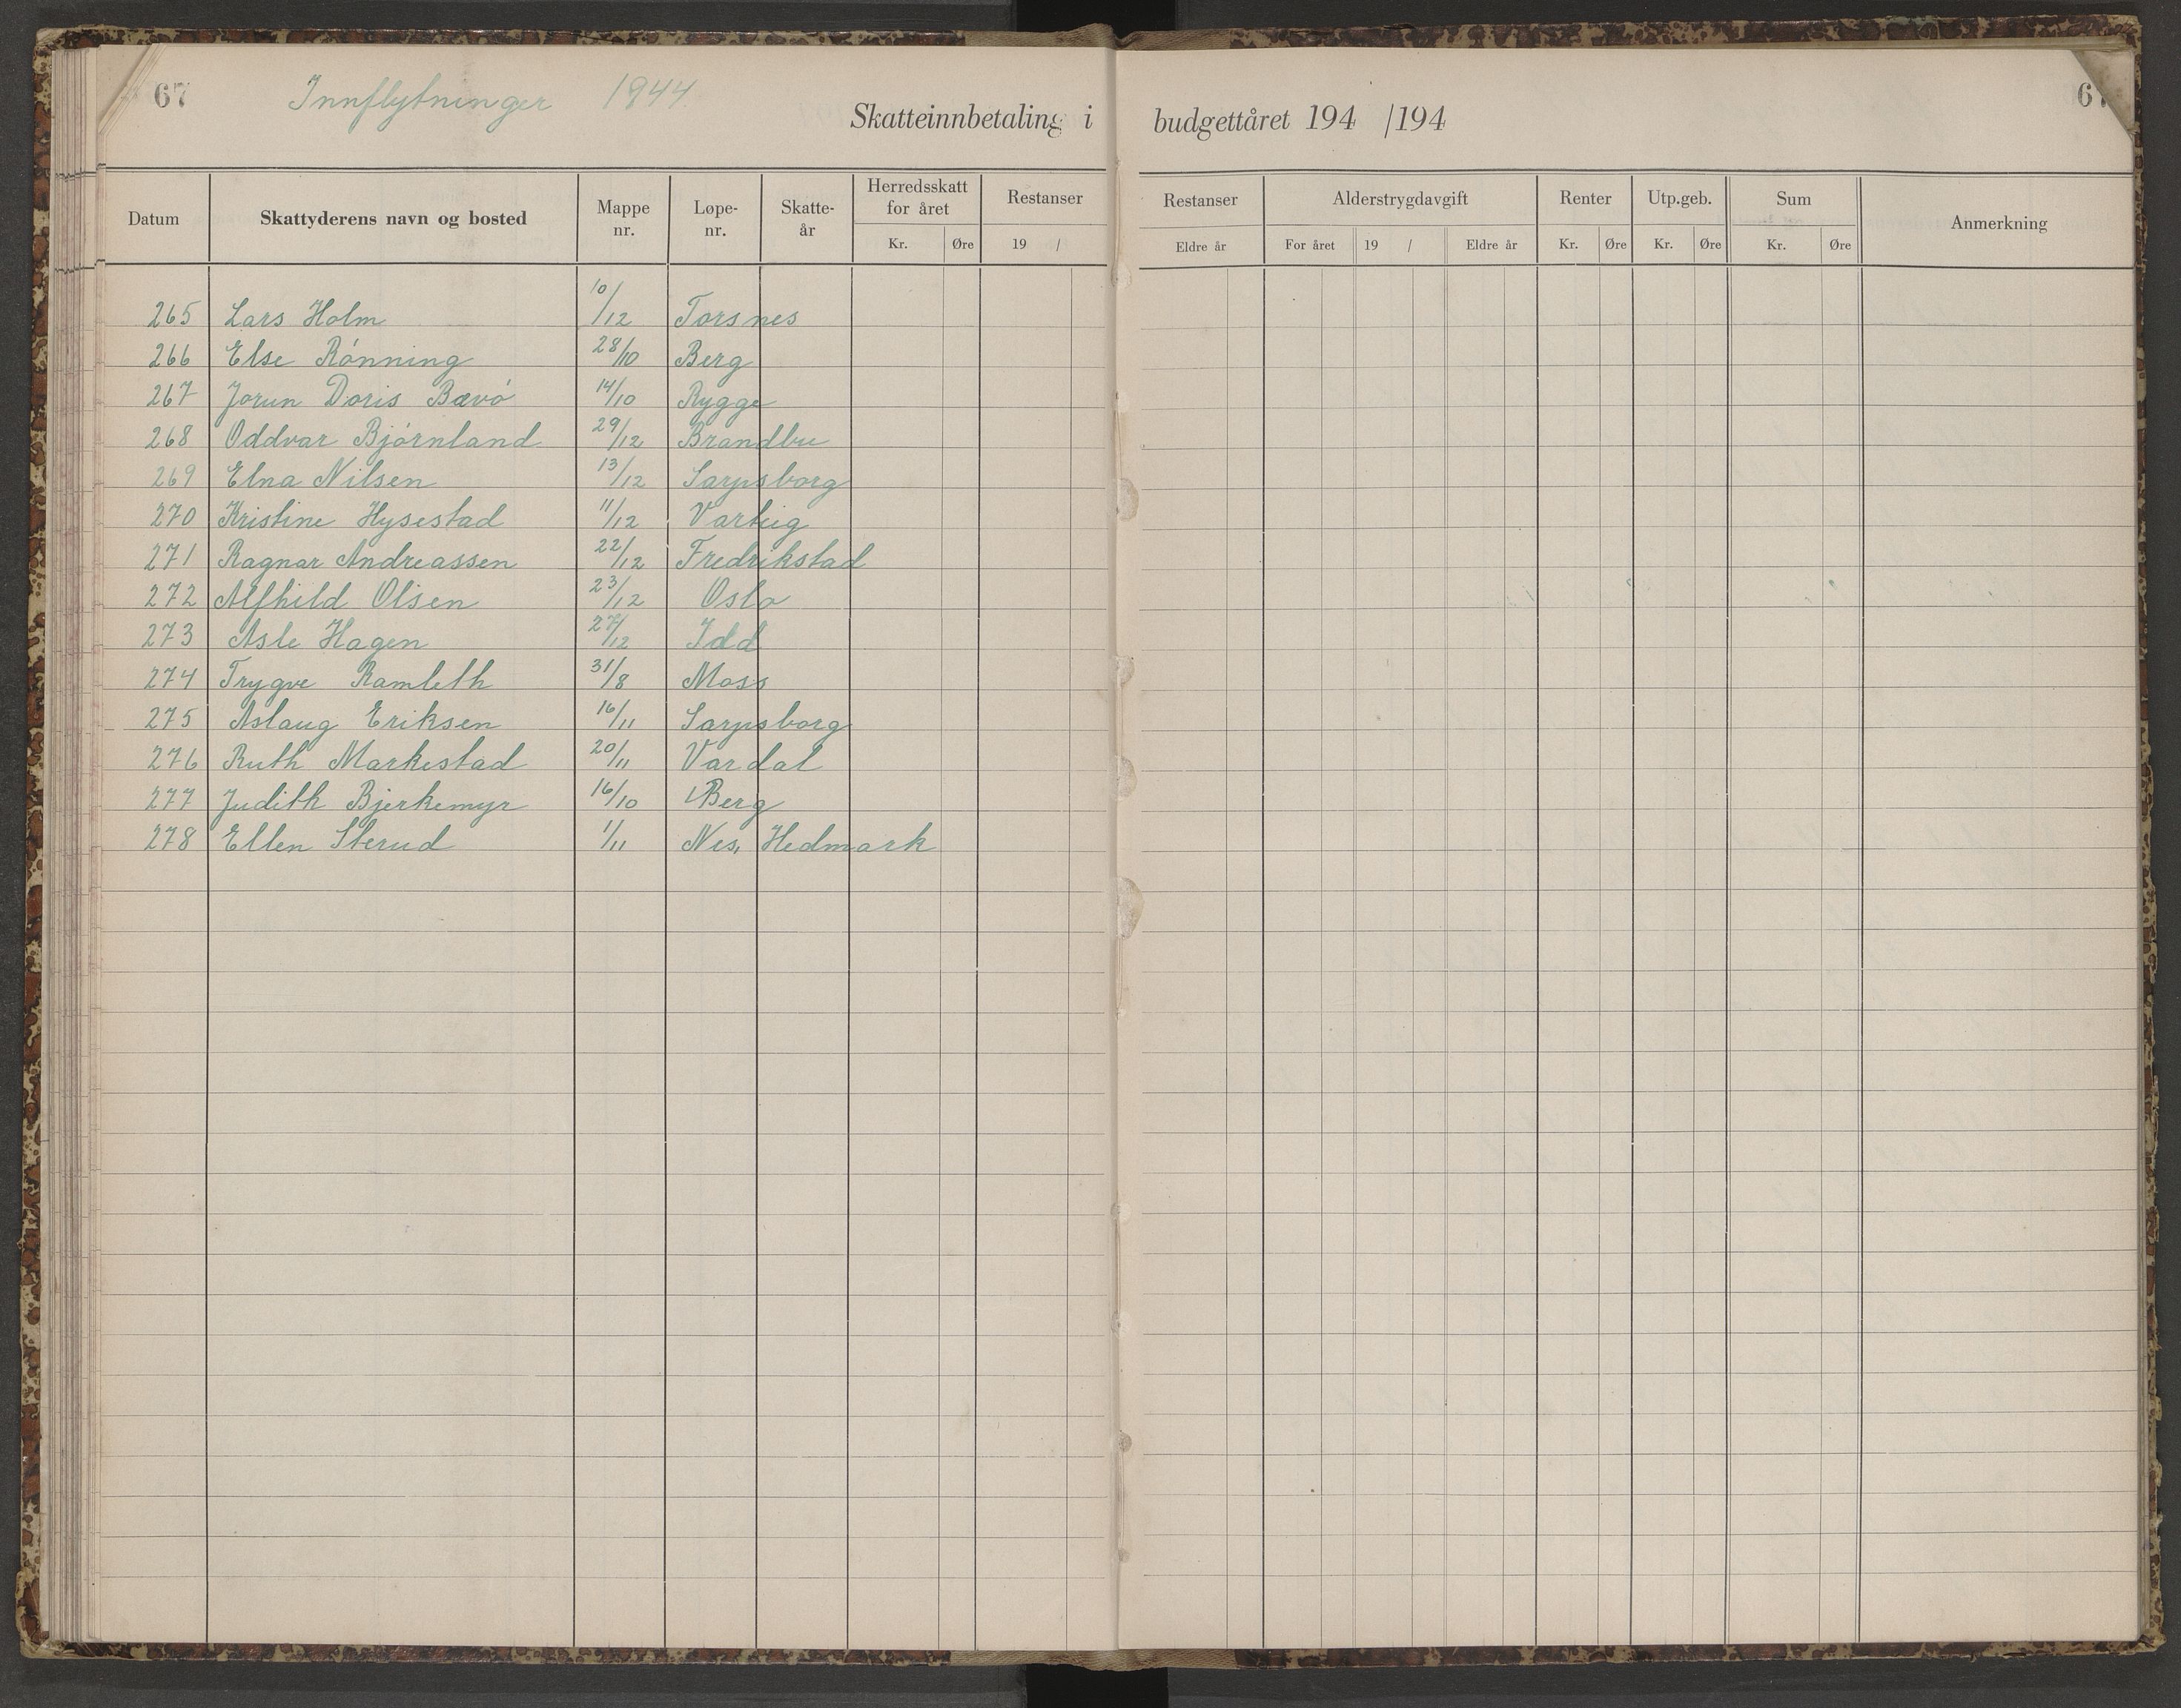 67 Innflytninger 1944
67
Skatteinnbetaling i budgettåret 194 /194
Datum Skattyderens navn og bosted Mappe nr. Løpe- nr. Skatte- år Herredsskatt for året Kr. Øre Restanser 19 / Restanser Eldre år Alderstrygdavgift For året 19 / Eldre år Renter Kr. Øre Utp.geb. Kr. Øre Sum Kr. Øre Anmerkning
265 Lars Holm 10/12 Torsnes
266 Else Rónning 28/10 Berg
267 Jorun Doris Bævó 14/10 Rygge
268 Oddvar Bjórnland 29/12 Brandbu
269 Elna Nilsen 13/12 Sarpsborg
270 Kristine Hysestad 11/12 Varteig
271 Ragnar Andreassen 22/12 Fredrikstad
272 Alfhild Olsen 23/12 Oslo
273 Asle Hagen 27/12 Idd
274 Trygve Ramleth 31/8 Moss
275 Aslaug Eriksen 16/11 Sarpsborg
276 Ruth Markestad 20/11 Vardal
277 Judith Bjerkemyr 16/10 Berg
278 Ellen Sterud 1/11 Nes, Hedmark